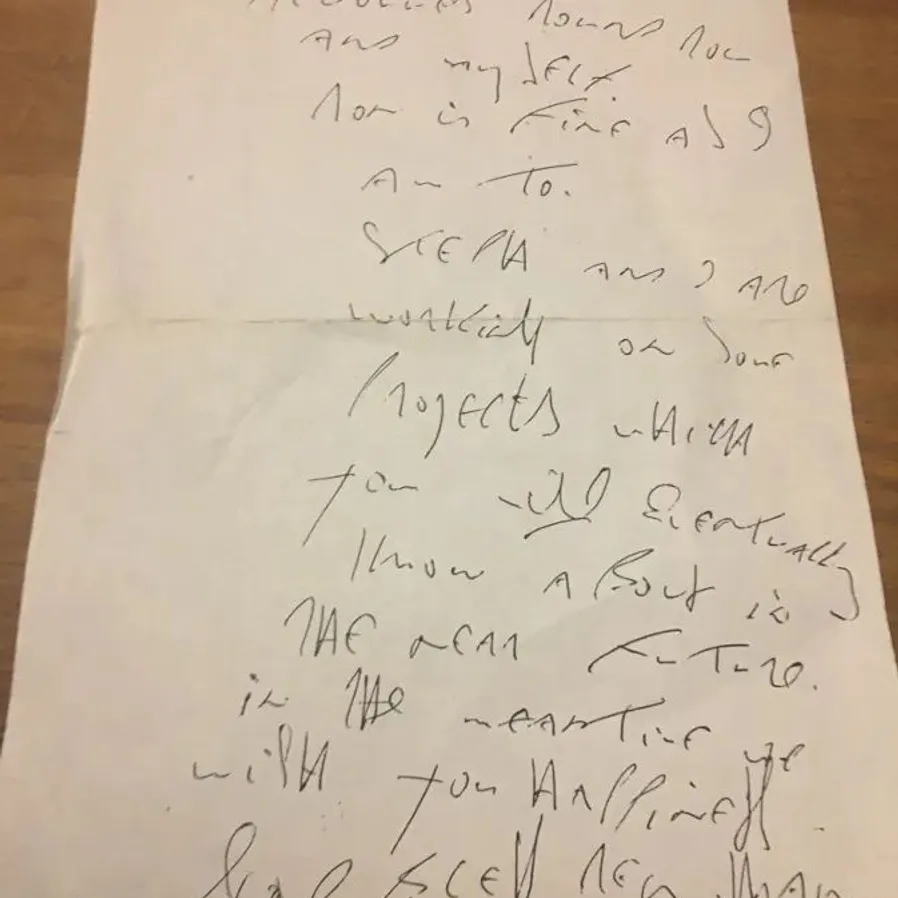 towards
and my self.
is fine as I
am to.
Steph and I are
working on some
Projects which
you will eventually
know about in
the near future.
in the meantime we
wish you happiness.